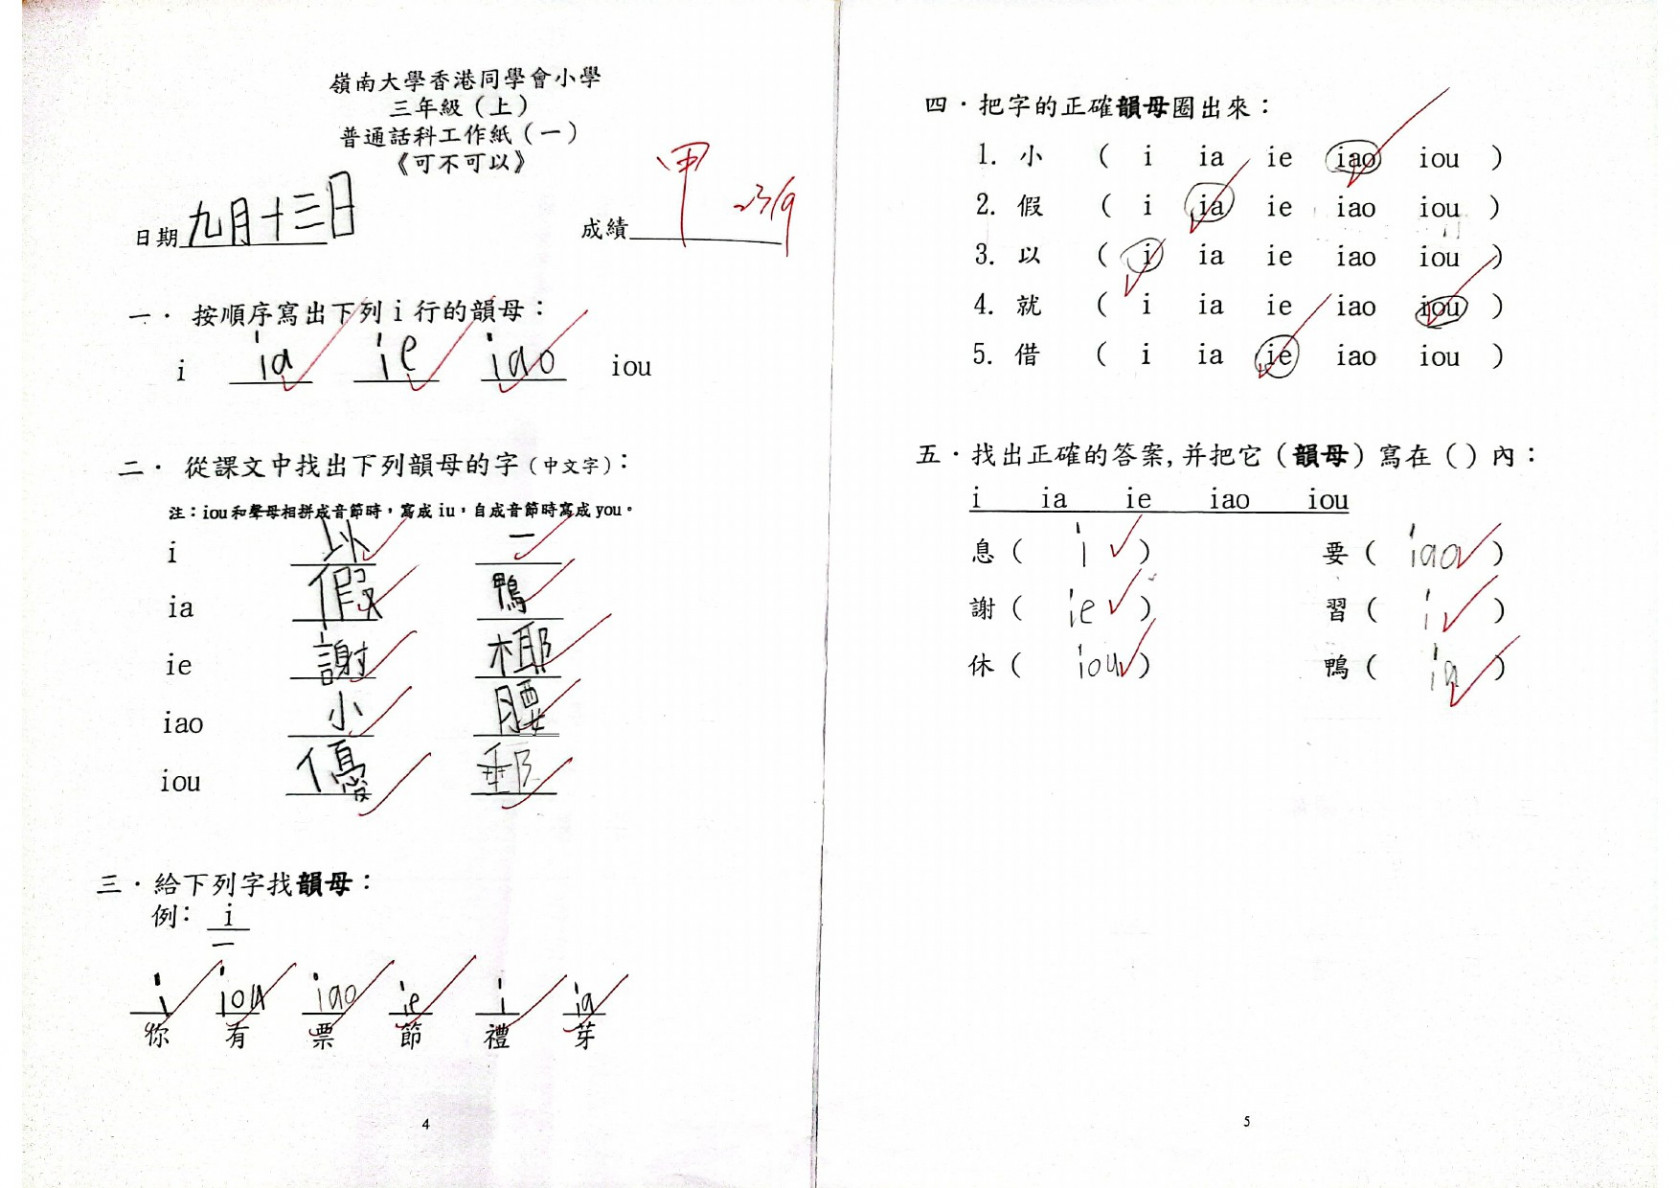 嶺南大學香港同學會小學
三年級（上）
普通話科工作紙（一）
《可不可以》
日期 九月十三日 成績 甲 23/9
一．按順序寫出下列 i 行的韻母：
i ia ie iao iou
二．從課文中找出下列韻母的字（中文字）：
注：iou 和聲母相拼成音節時，寫成 iu，自成音節時寫成 you。
i 以 一
ia 假 鴨
ie 謝 椰
iao 小 腰
iou 優 郵
三．給下列字找韻母：
例： i
一
i iou iao ie i ia
你 有 票 節 禮 芽
4
四．把字的正確韻母圈出來：
1. 小 （ i ia ie iao iou ）
2. 假 （ i ia ie iao iou ）
3. 以 （ i ia ie iao iou ）
4. 就 （ i ia ie iao iou ）
5. 借 （ i ia ie iao iou ）
五．找出正確的答案,并把它（韻母）寫在（）內：
i ia ie iao iou
息（ i ） 要（ iao ）
謝（ ie ） 習（ i ）
休（ iou ） 鴨（ ia ）
5